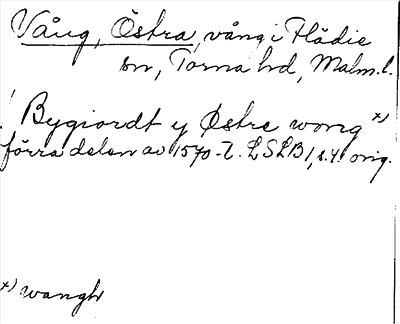 Vång, Östra, vång i Flädie
sn, Torna hd, Malm.l.
! Bygiordt y Østre wong x)
förra delen av 1570-t. LSLB 1, s.4. orig.
x) wangh